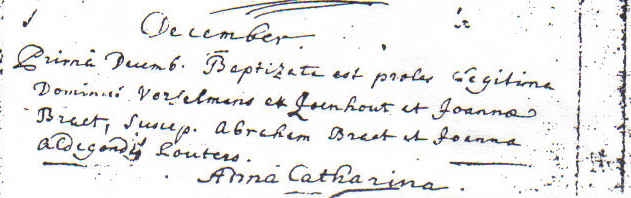 December
Primâ Decemb. Baptizata est proles Legitima
Dominici Verselmens ex Loenhout et Joannæ
Braet, Suscep. Abraham Braet et Joanna
Aldegondis Louters.
Anna Catharina.